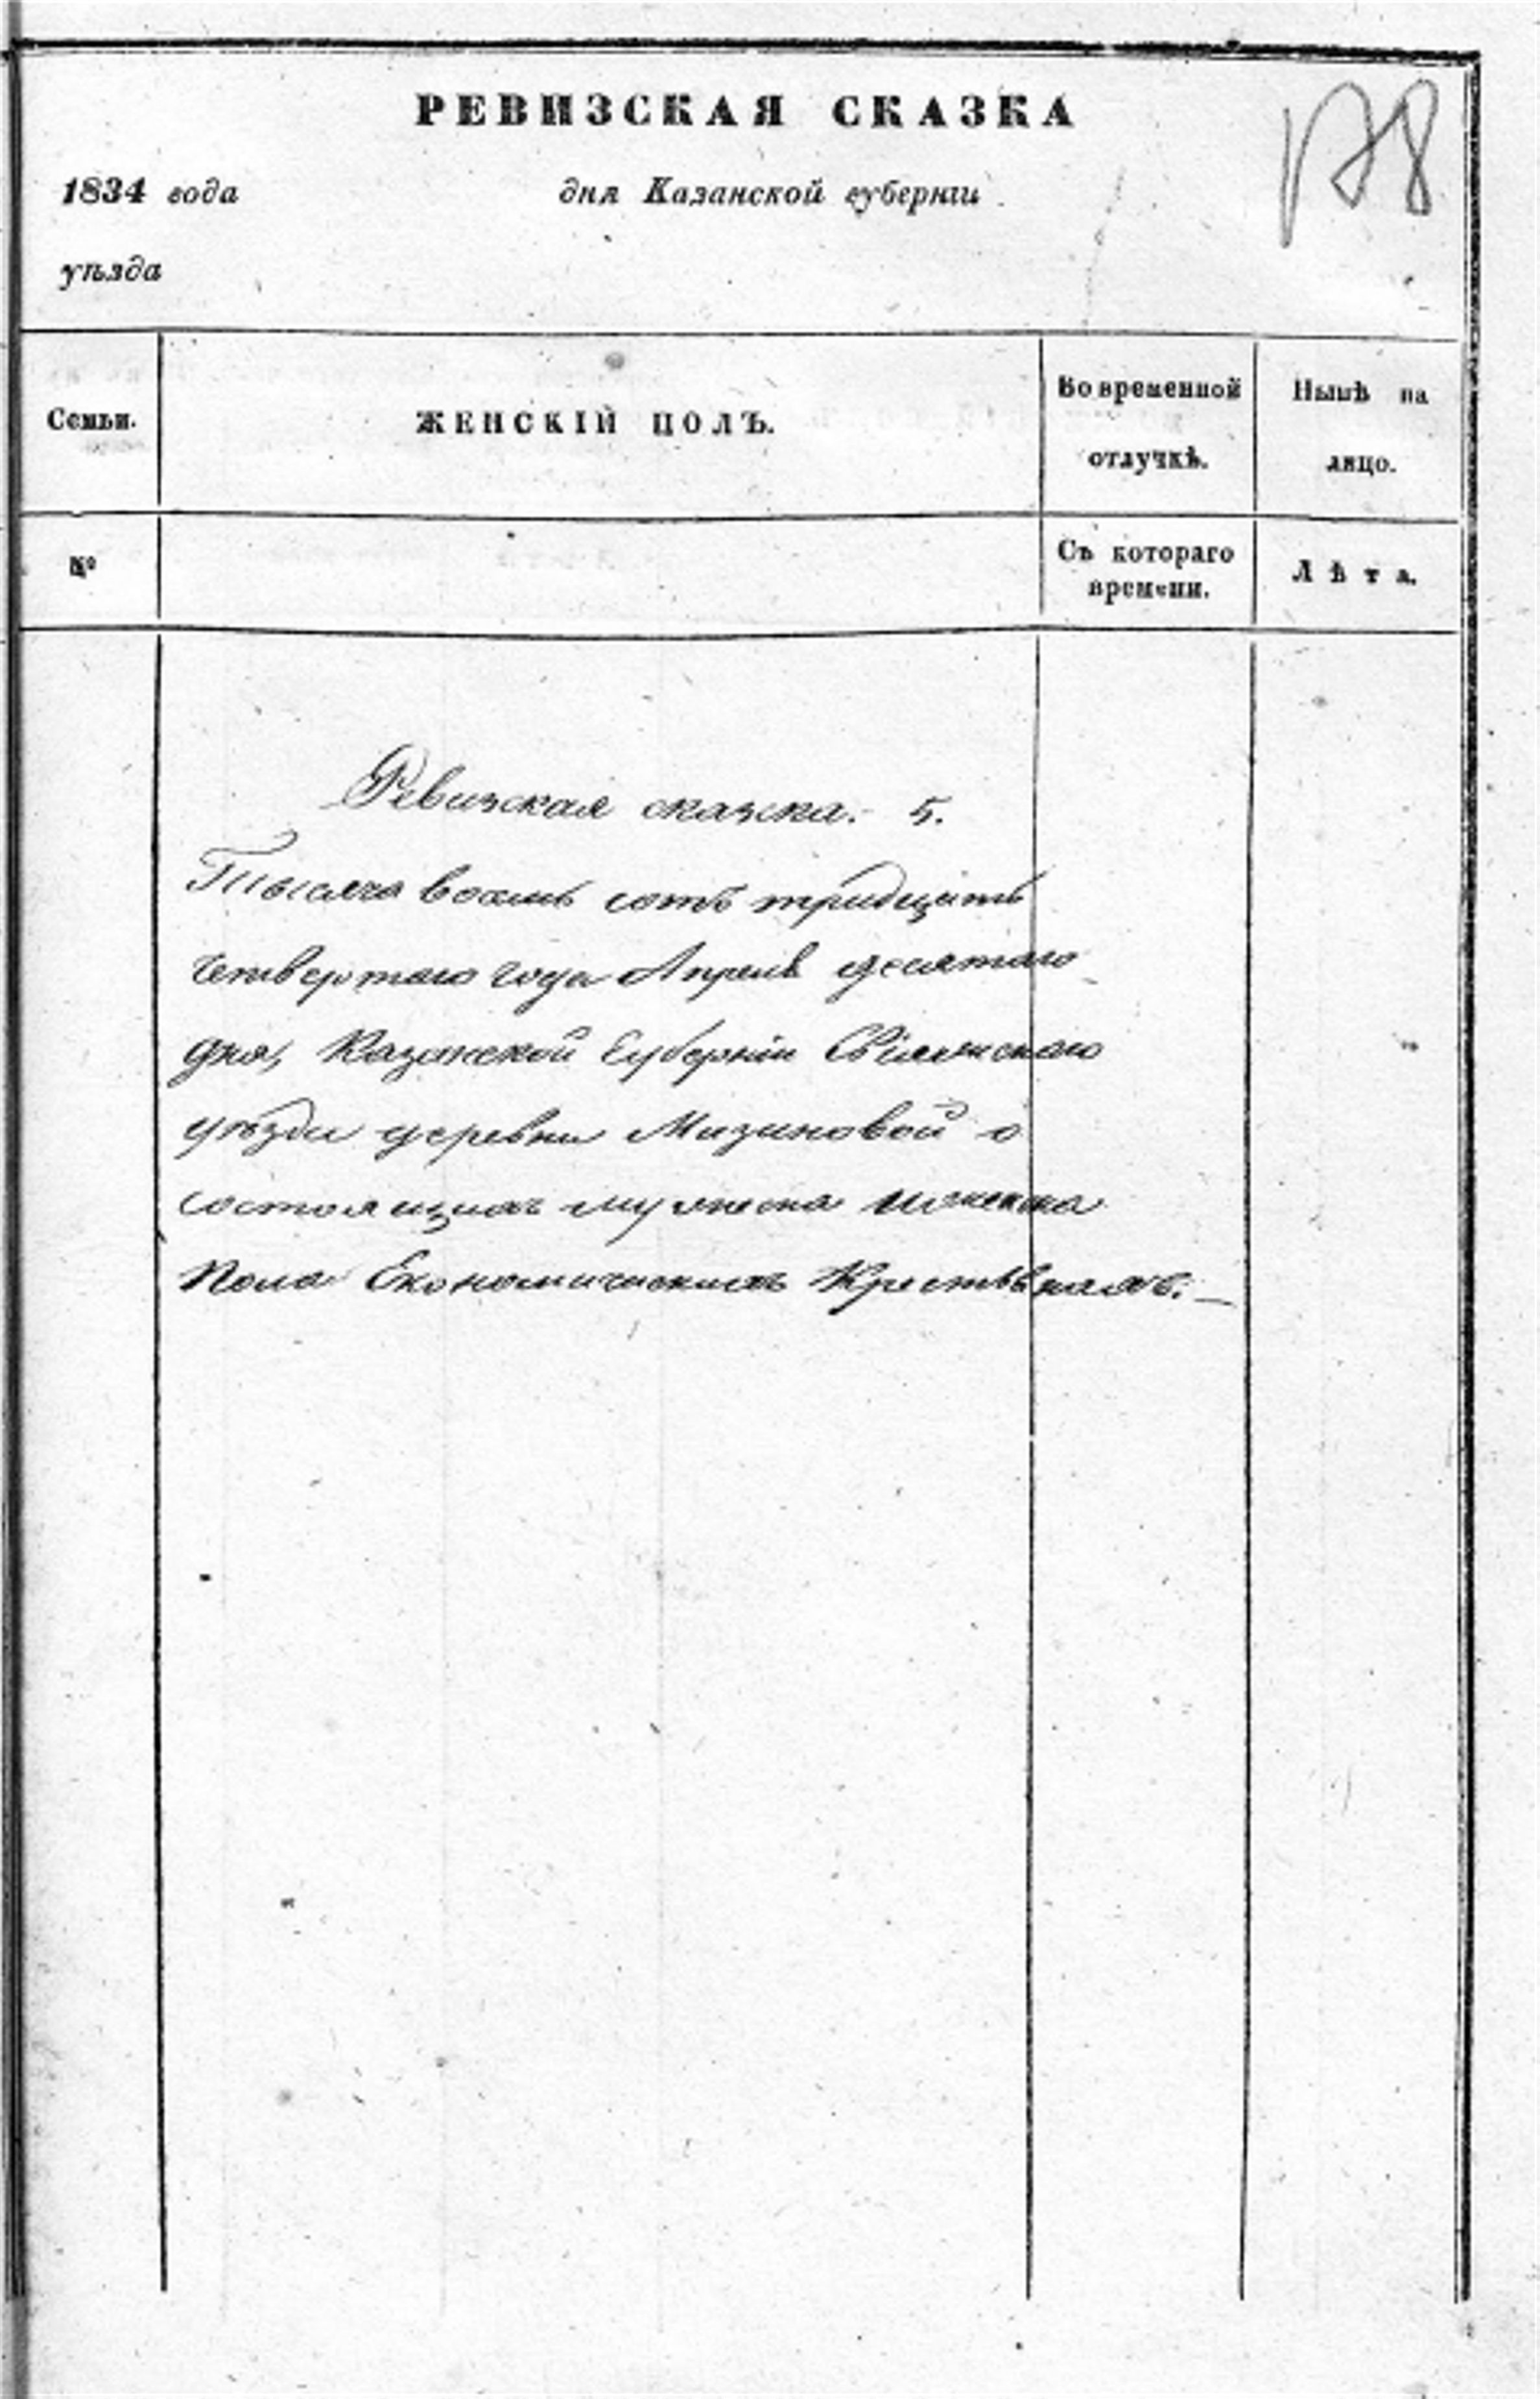 РЕВИЗСКАЯ СКАЗКА
178
1834 года дня Казанской губерніи
уѣзда
Семьи. ЖЕНСКІЙ ПОЛЪ. Во временной отлучкѣ. Нынѣ на лицо.
№ Съ котораго времени. Лѣта.
Ревизская сказка. 5.
Тысяча восемь сотъ тридцать
четвертаго года Апреля десятаго
дня, Казанской Губерніи Свіяжскаго
уѣзда деревни Мизиновой о
состоящихъ мужеска и женска
пола Економическихъ Крестьянахъ.